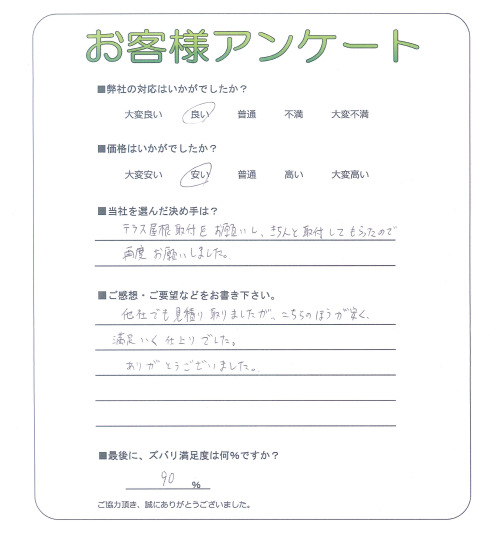 お客様アンケート
■弊社の対応はいかがでしたか？
大変良い 良い 普通 不満 大変不満
■価格はいかがでしたか？
大変安い 安い 普通 高い 大変高い
■当社を選んだ決め手は？
テラス屋根取付をお願いし、きちんと取付してもらったので
再度お願いしました。
■ご感想・ご要望などをお書き下さい。
他社でも見積り取りましたが、こちらのほうが安く、
満足いく仕上りでした。
ありがとうございました。
■最後に、ズバリ満足度は何％ですか？
90 %
ご協力頂き、誠にありがとうございました。